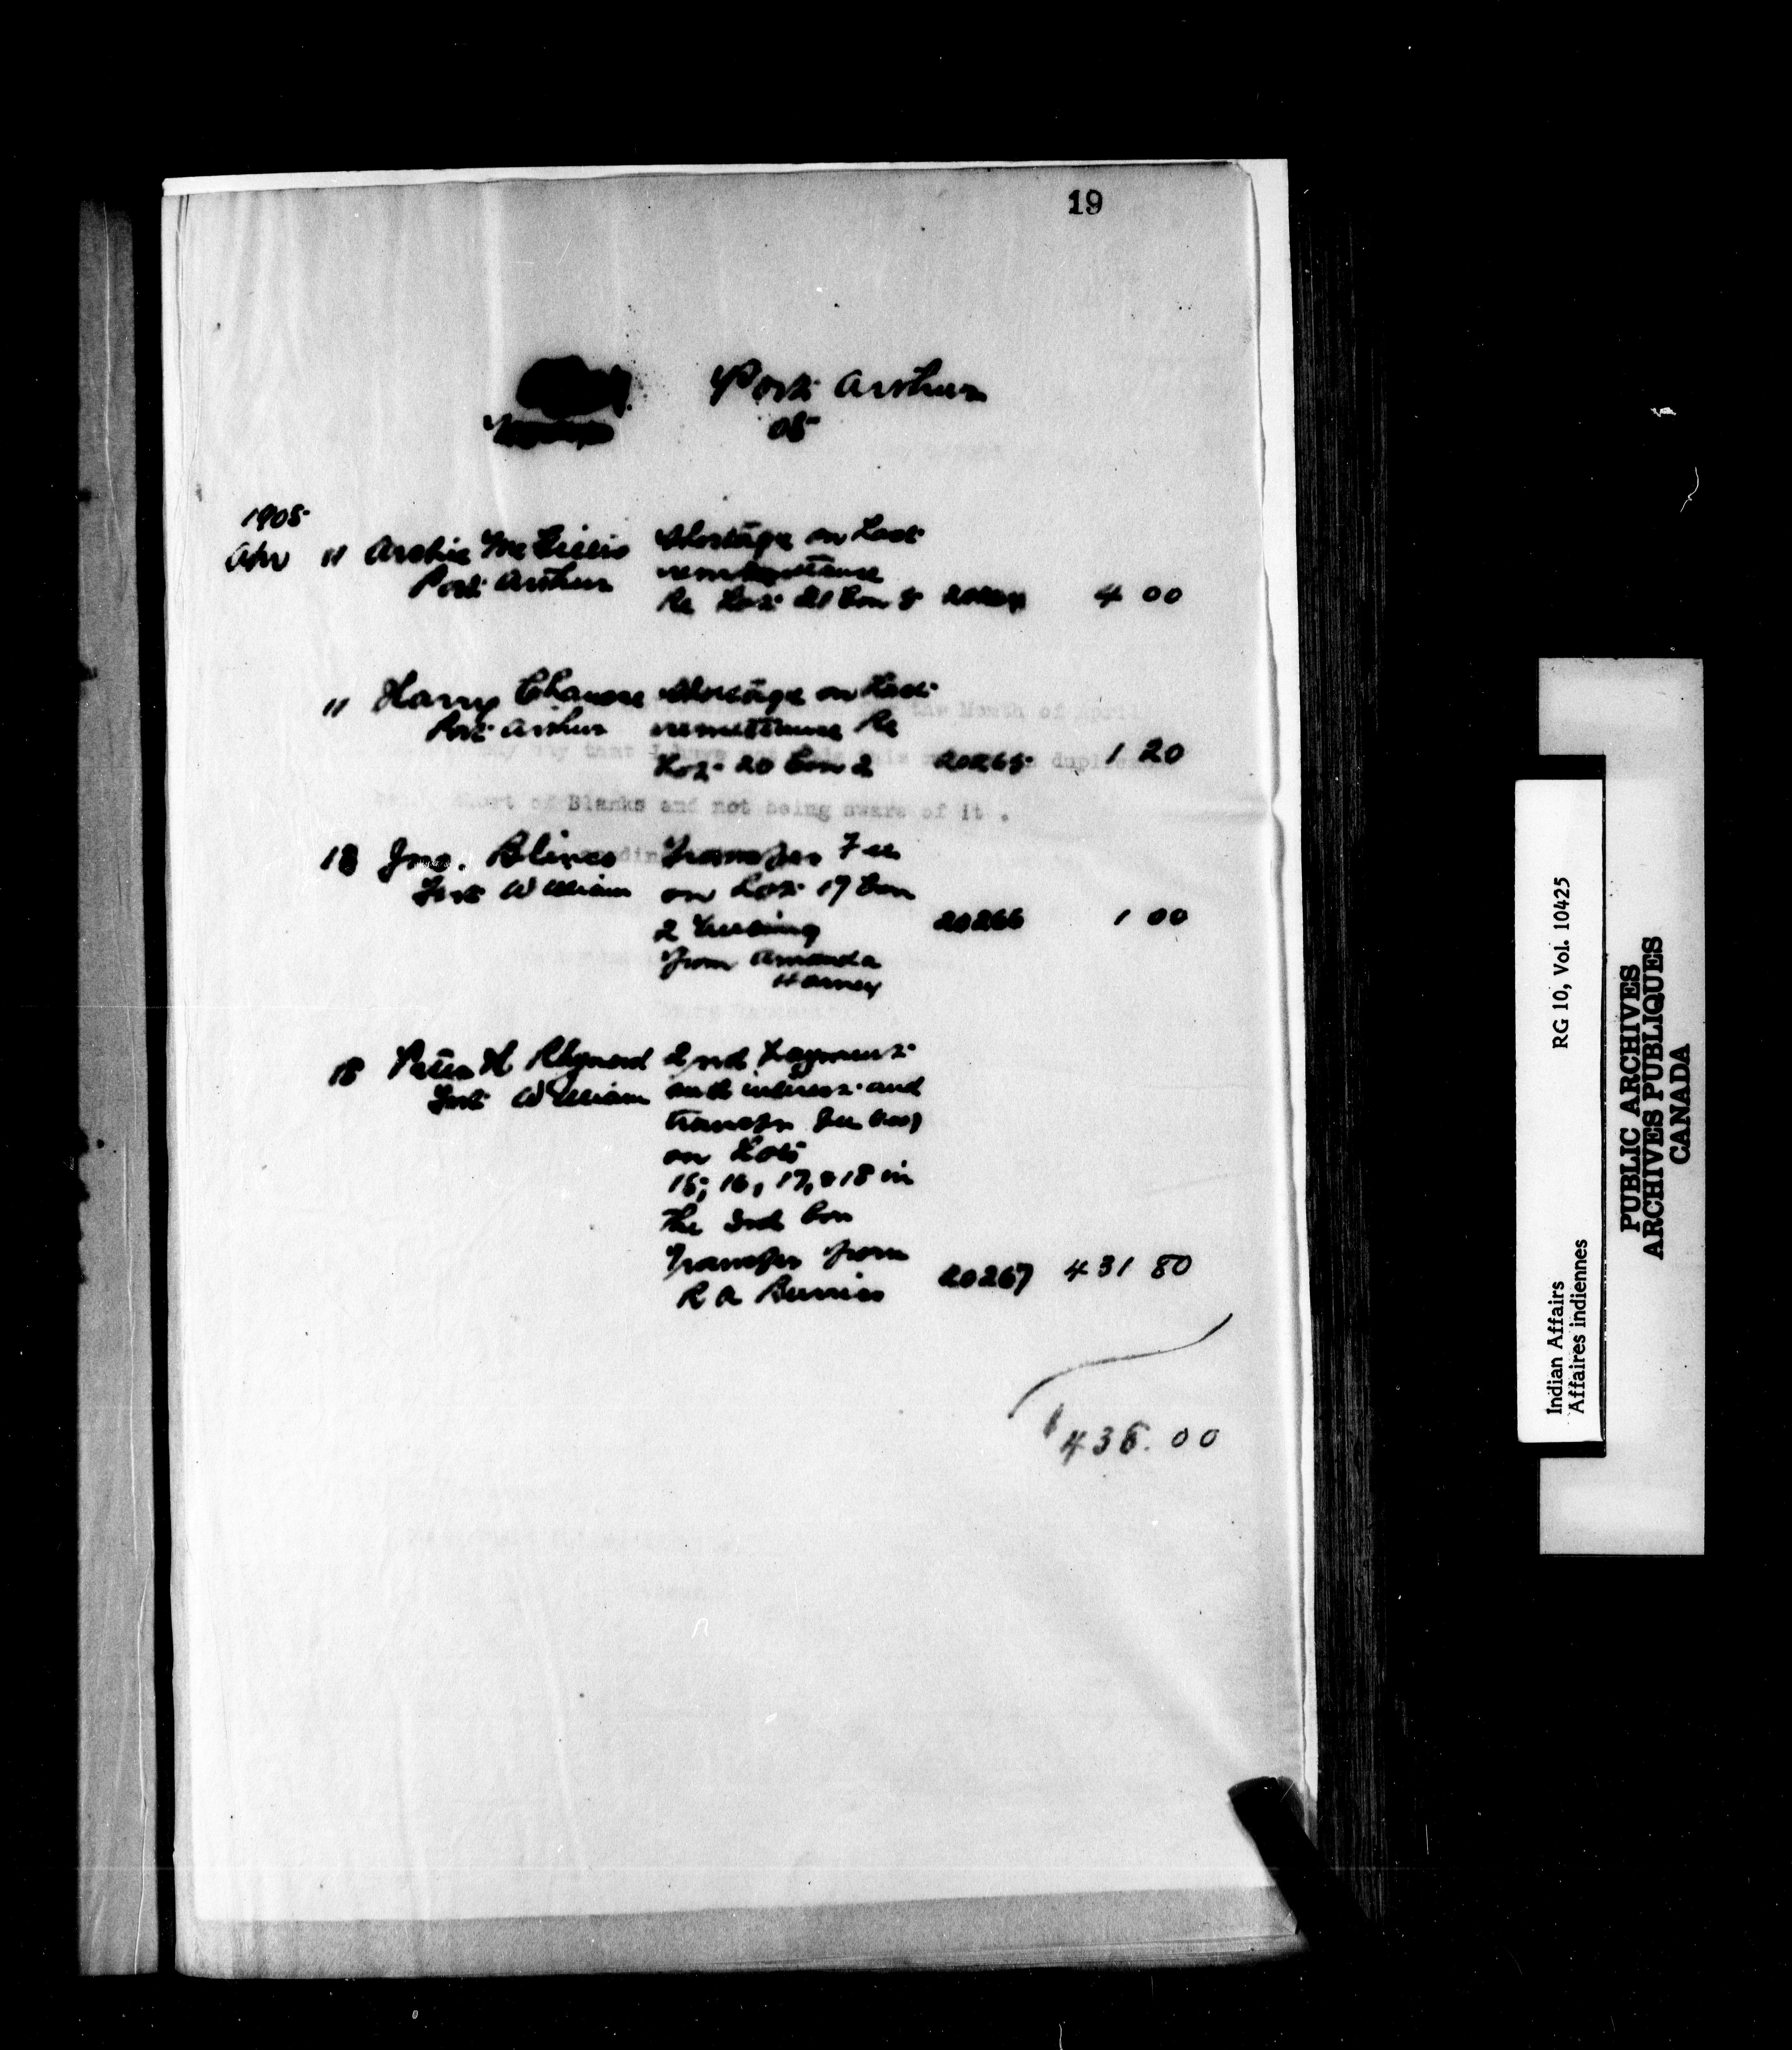 19
Port Arthur
05
1905
Apr 11 Archie McGillis Shortage on Last
Port Arthur remittance
Re Lot 21 Con 4 00
11 Harry Shortage on Last
Port Arthur remittance Re
Lot 20 Con 2 20265 1 20
18 Jno. Transfer Fee
Fort William on Lot 17 Con
2 20266 1 00
from Amanda
Harney
18 Peter H 2nd Payment
Fort William with interest and
transfer fee
on Lots
15, 16, 17, & 18 in
the Con
Transfer from
R A 20267 431 80
$438.00
the Month of April
may say that I have not this duplic
short of Blanks and not being aware of it .
Indian Affairs RG 10, Vol. 10425
Affaires indiennes
PUBLIC ARCHIVES
ARCHIVES PUBLIQUES
CANADA